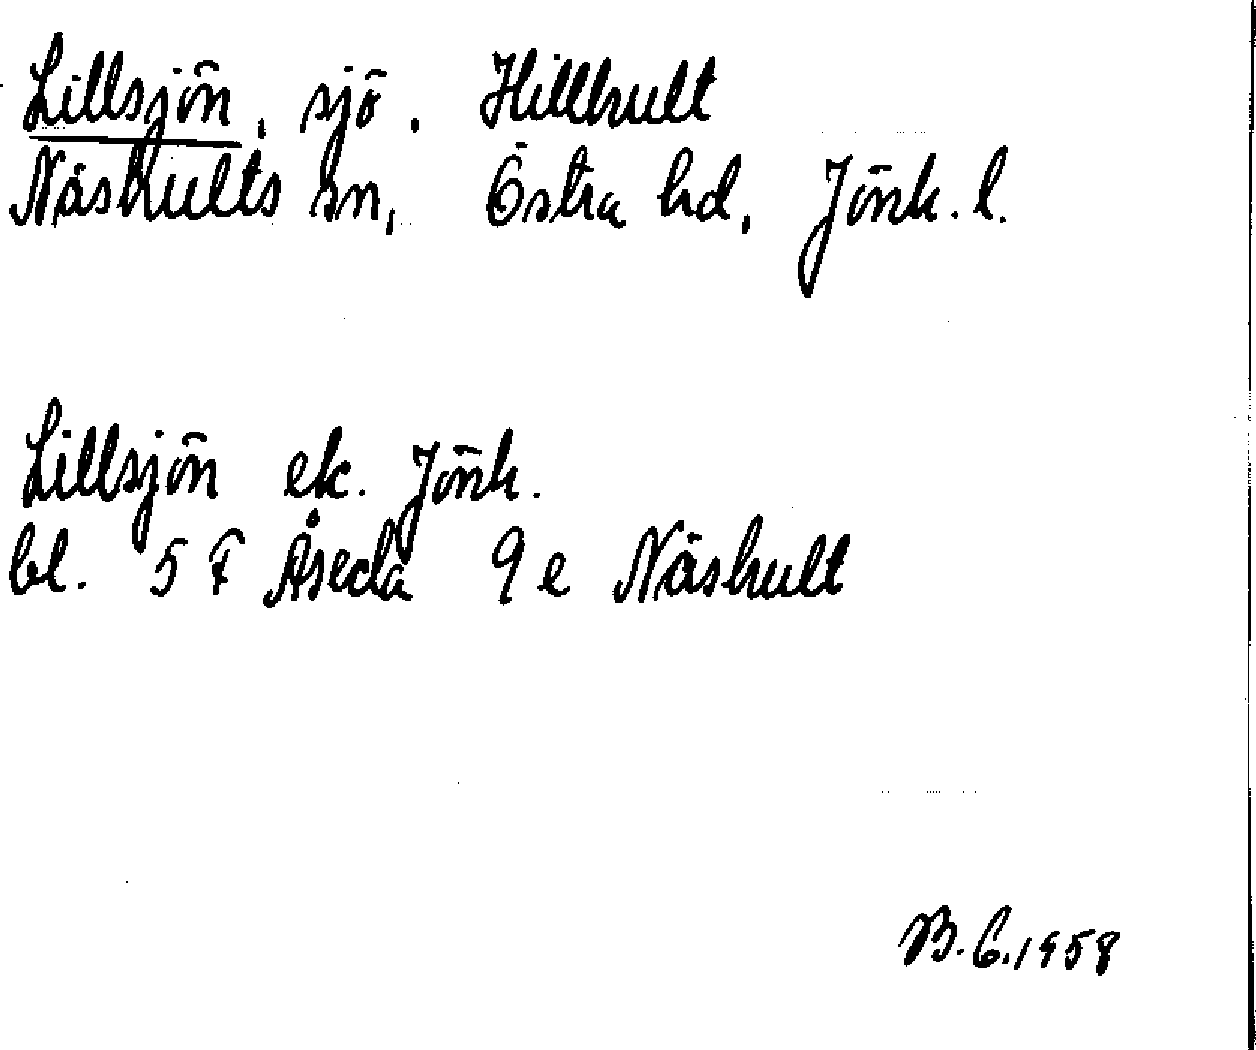 Lillsjön, sjö. Hillhult
Näshults sn, Östra hd, Jönk. l.
Lillsjön ek. Jönk.
bl. 5 F Åseda 9 e Näshult
B.G.1958